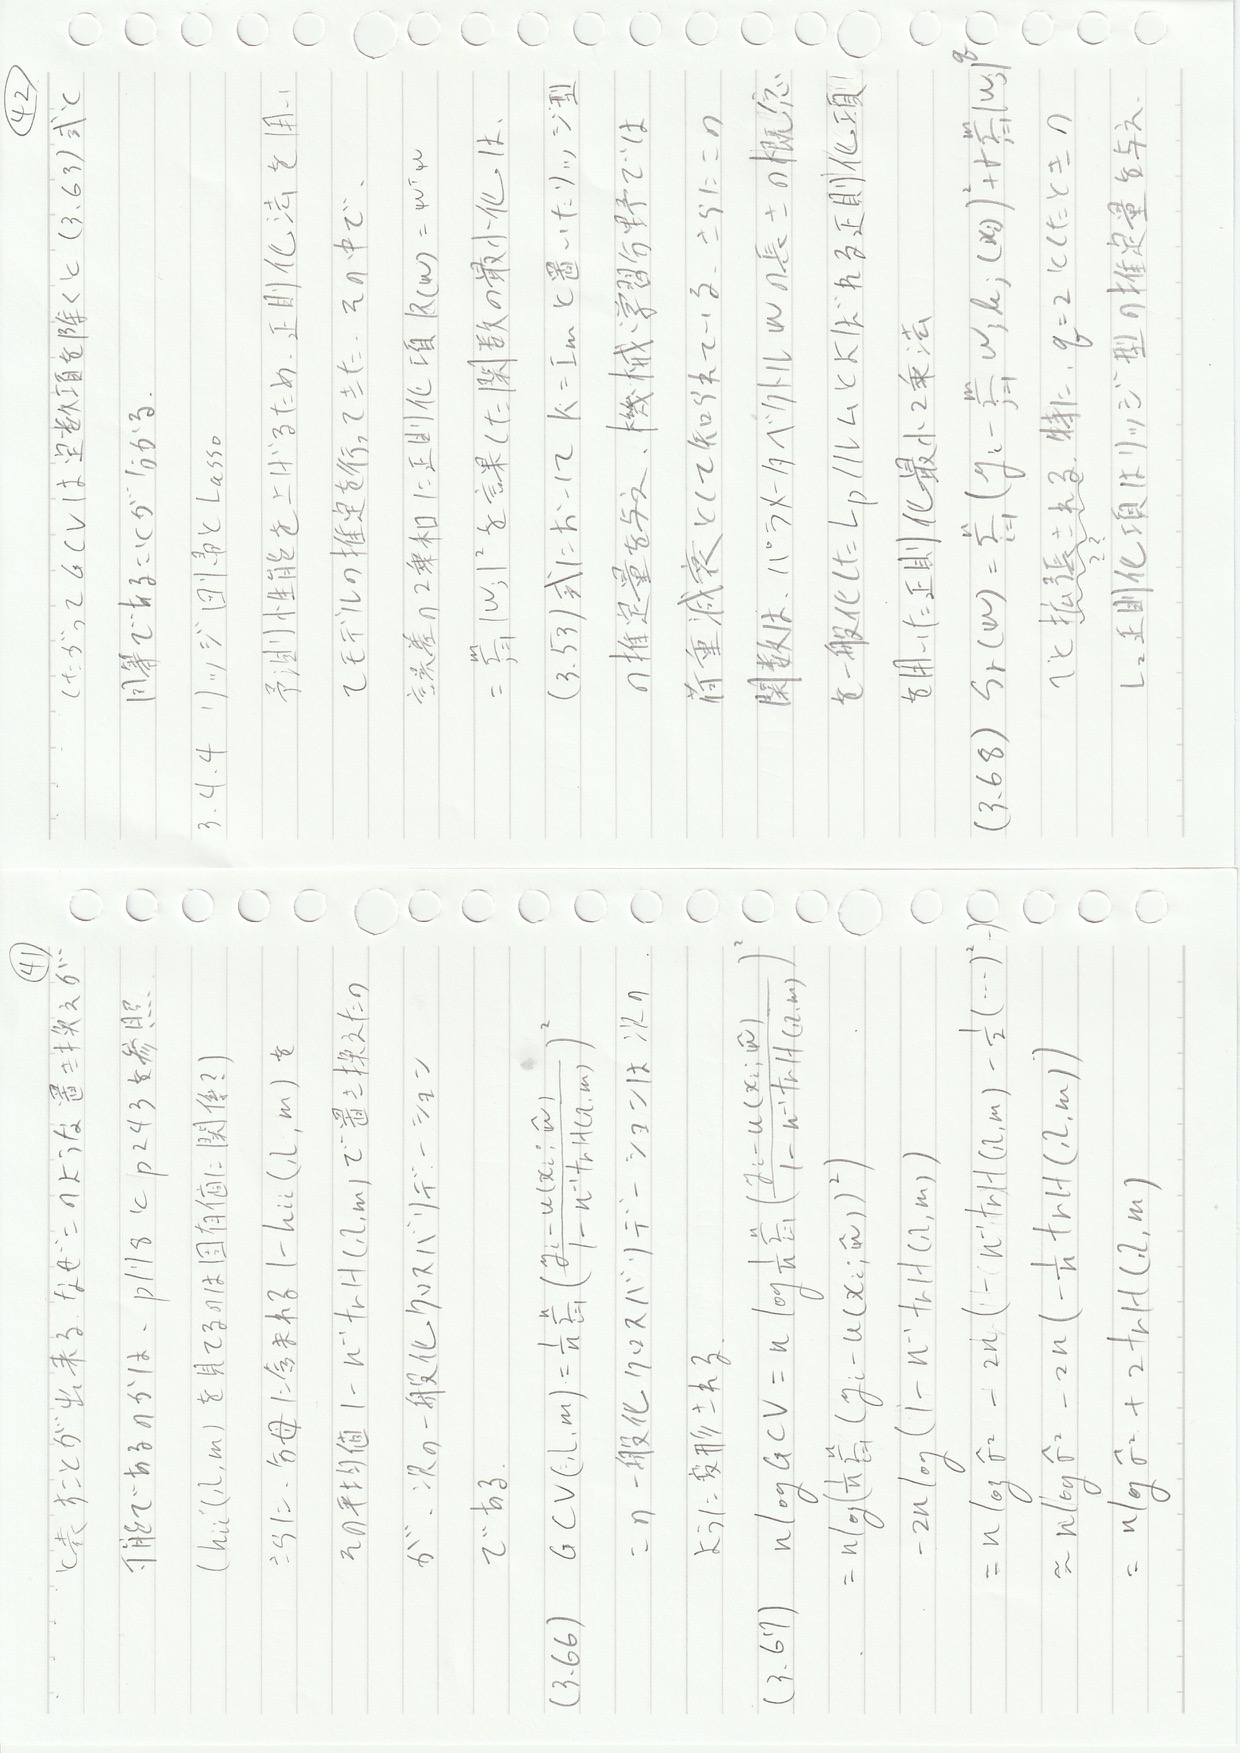 ㊶
と表すことが出来る. なぜこのような置き換えが
可能であるのかは、p118とp243を参照.
(hii(λ,m)を見てるのは固有値に関係?)
さらに、分母に含まれる 1-hii(λ,m)を
その平均値 1-n⁻¹trH(λ,m)で置き換えたの
が、次の一般化クロスバリデーション
である.
(3.66) GCV(λ,m) = 1/n Σ_{i=1}^{n} ( (y_i - u(x_i; ŵ)) / (1 - n⁻¹trH(λ,m)) )²
この一般化クロスバリデーションは次の
ように変形される.
(3.67) n log GCV = n log 1/n Σ_{i=1}^{n} ( (y_i - u(x_i; ŵ)) / (1 - n⁻¹trH(λ,m)) )²
= n log( 1/n Σ_{i=1}^{n} (y_i - u(x_i; ŵ))² )
- 2n log (1 - n⁻¹ trH(λ,m))
= n log σ̂² - 2n (-n⁻¹trH(λ,m) - 1/2 (…)² …)
≈ n log σ̂² - 2n (-1/n trH(λ,m))
= n log σ̂² + 2trH(λ,m)
㊷
したがってGCVは定数項を除くと(3.63)式と
同等であることが分かる.
3.4.4 リッジ回帰とLasso
予測性能を上げるため、正則化法を用い
てモデルの推定を行ってきた. その中で、
誤差の2乗和に正則化項 R(w) = wᵀw
= Σ_{j=1}^{m} |w_j|² を課した関数の最小化は、
(3.53)式において K=I_m と置いたリッジ型
の推定量を与え、機械学習分野では
荷重減衰として知られている. さらにこの
関数は、パラメータベクトル w の長さの概念
を一般化した Lpノルムとよばれる正則化項
を用いた正則化最小2乗法
(3.68) S_γ(w) = Σ_{i=1}^{n} (y_i - Σ_{j=1}^{m} w_j b_j(x_i))² + γ Σ_{j=1}^{m} |w_j|^q
へと拡張される. 特に、q=2としたときの
??
L₂正則化項はリッジ型の推定量を与え、